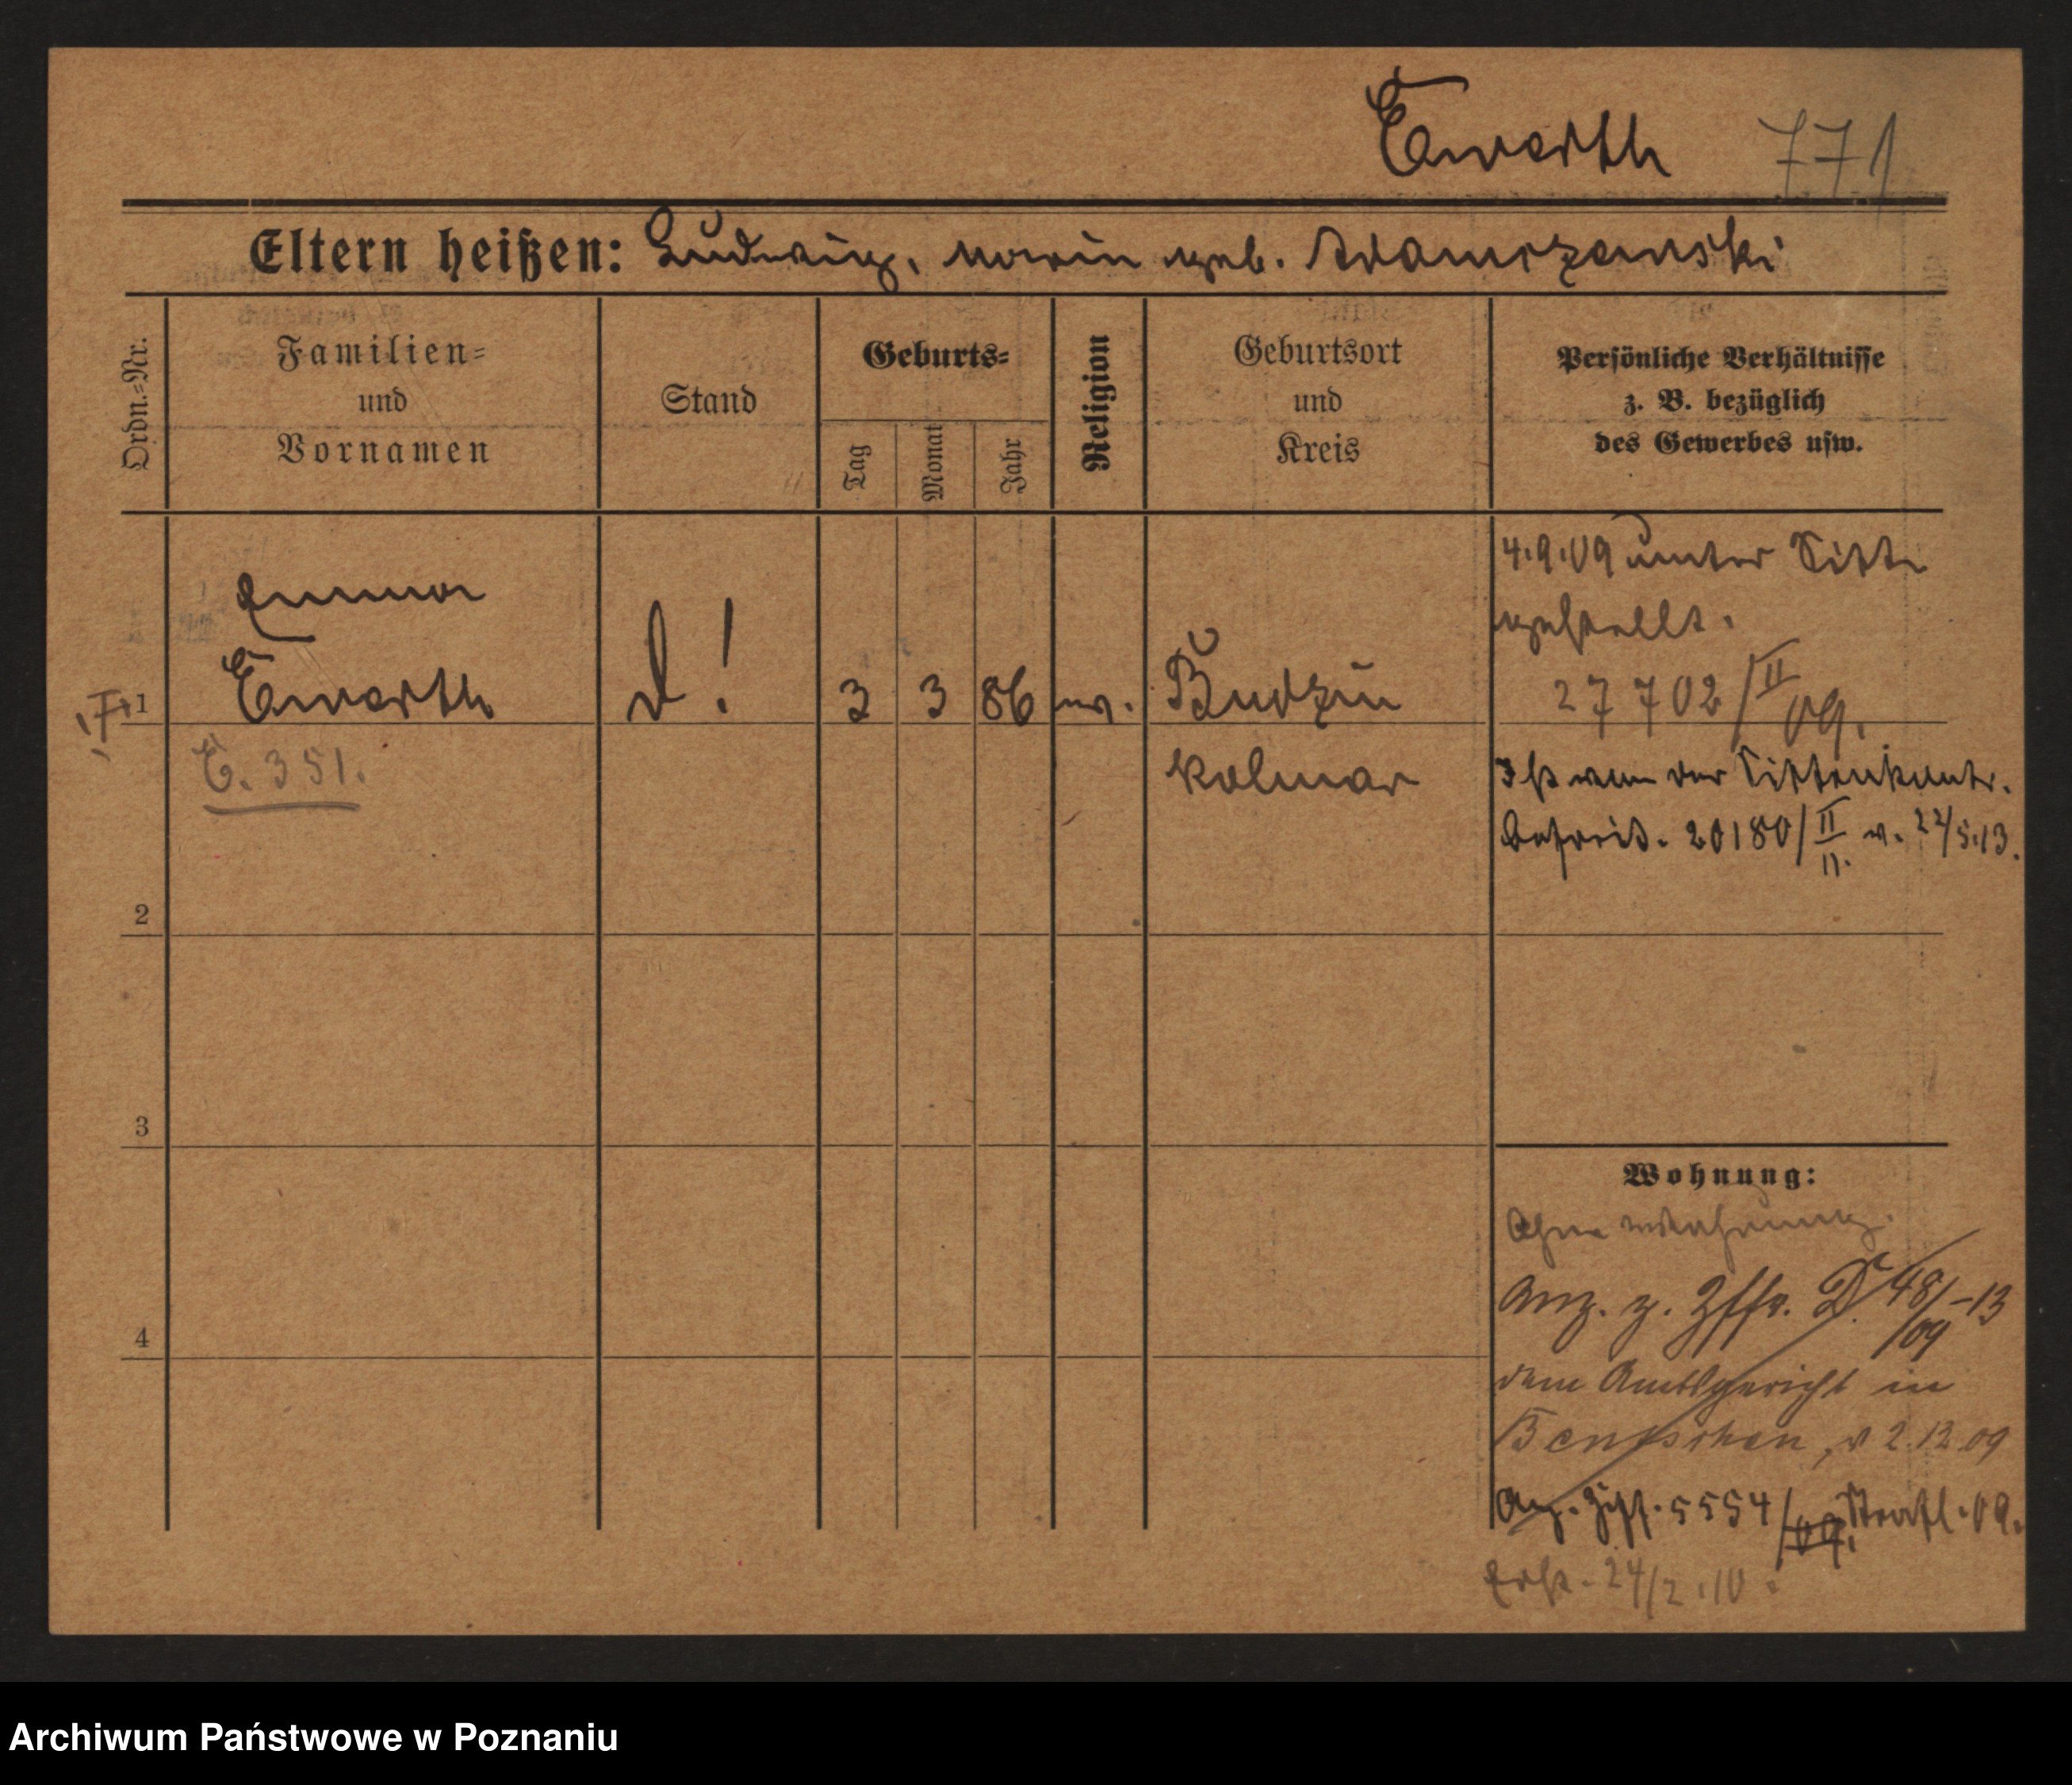 Ewerth 771
Eltern heißen: Ludwig, Marie geb. Adamczewski
Ordn.=Nr.
Familien=
und
Vornamen
Stand
Geburts=
Tag
Monat
Jahr
Religion
Geburtsort
und
Kreis
Persönliche Verhältnisse
z. B. bezüglich
des Gewerbes usw.
1
Emma
Ewerth
3 3 86 ev.
Budzin
Kolmar
E. 351.
4.9.09 unter Sitte
gestellt.
27702/II 09.
Ist von der Sittenkontr.
befreit. 20180/II v. 22/5.13.
2
3
4
Wohnung:
Ohne Wohnung.
Anz. z. D 48/09 -13
dem Amtsgericht in
Bentschen, d 2.12.09
Anz. Ziff. 5554/09. 09.
24/2.10.
Archiwum Państwowe w Poznaniu